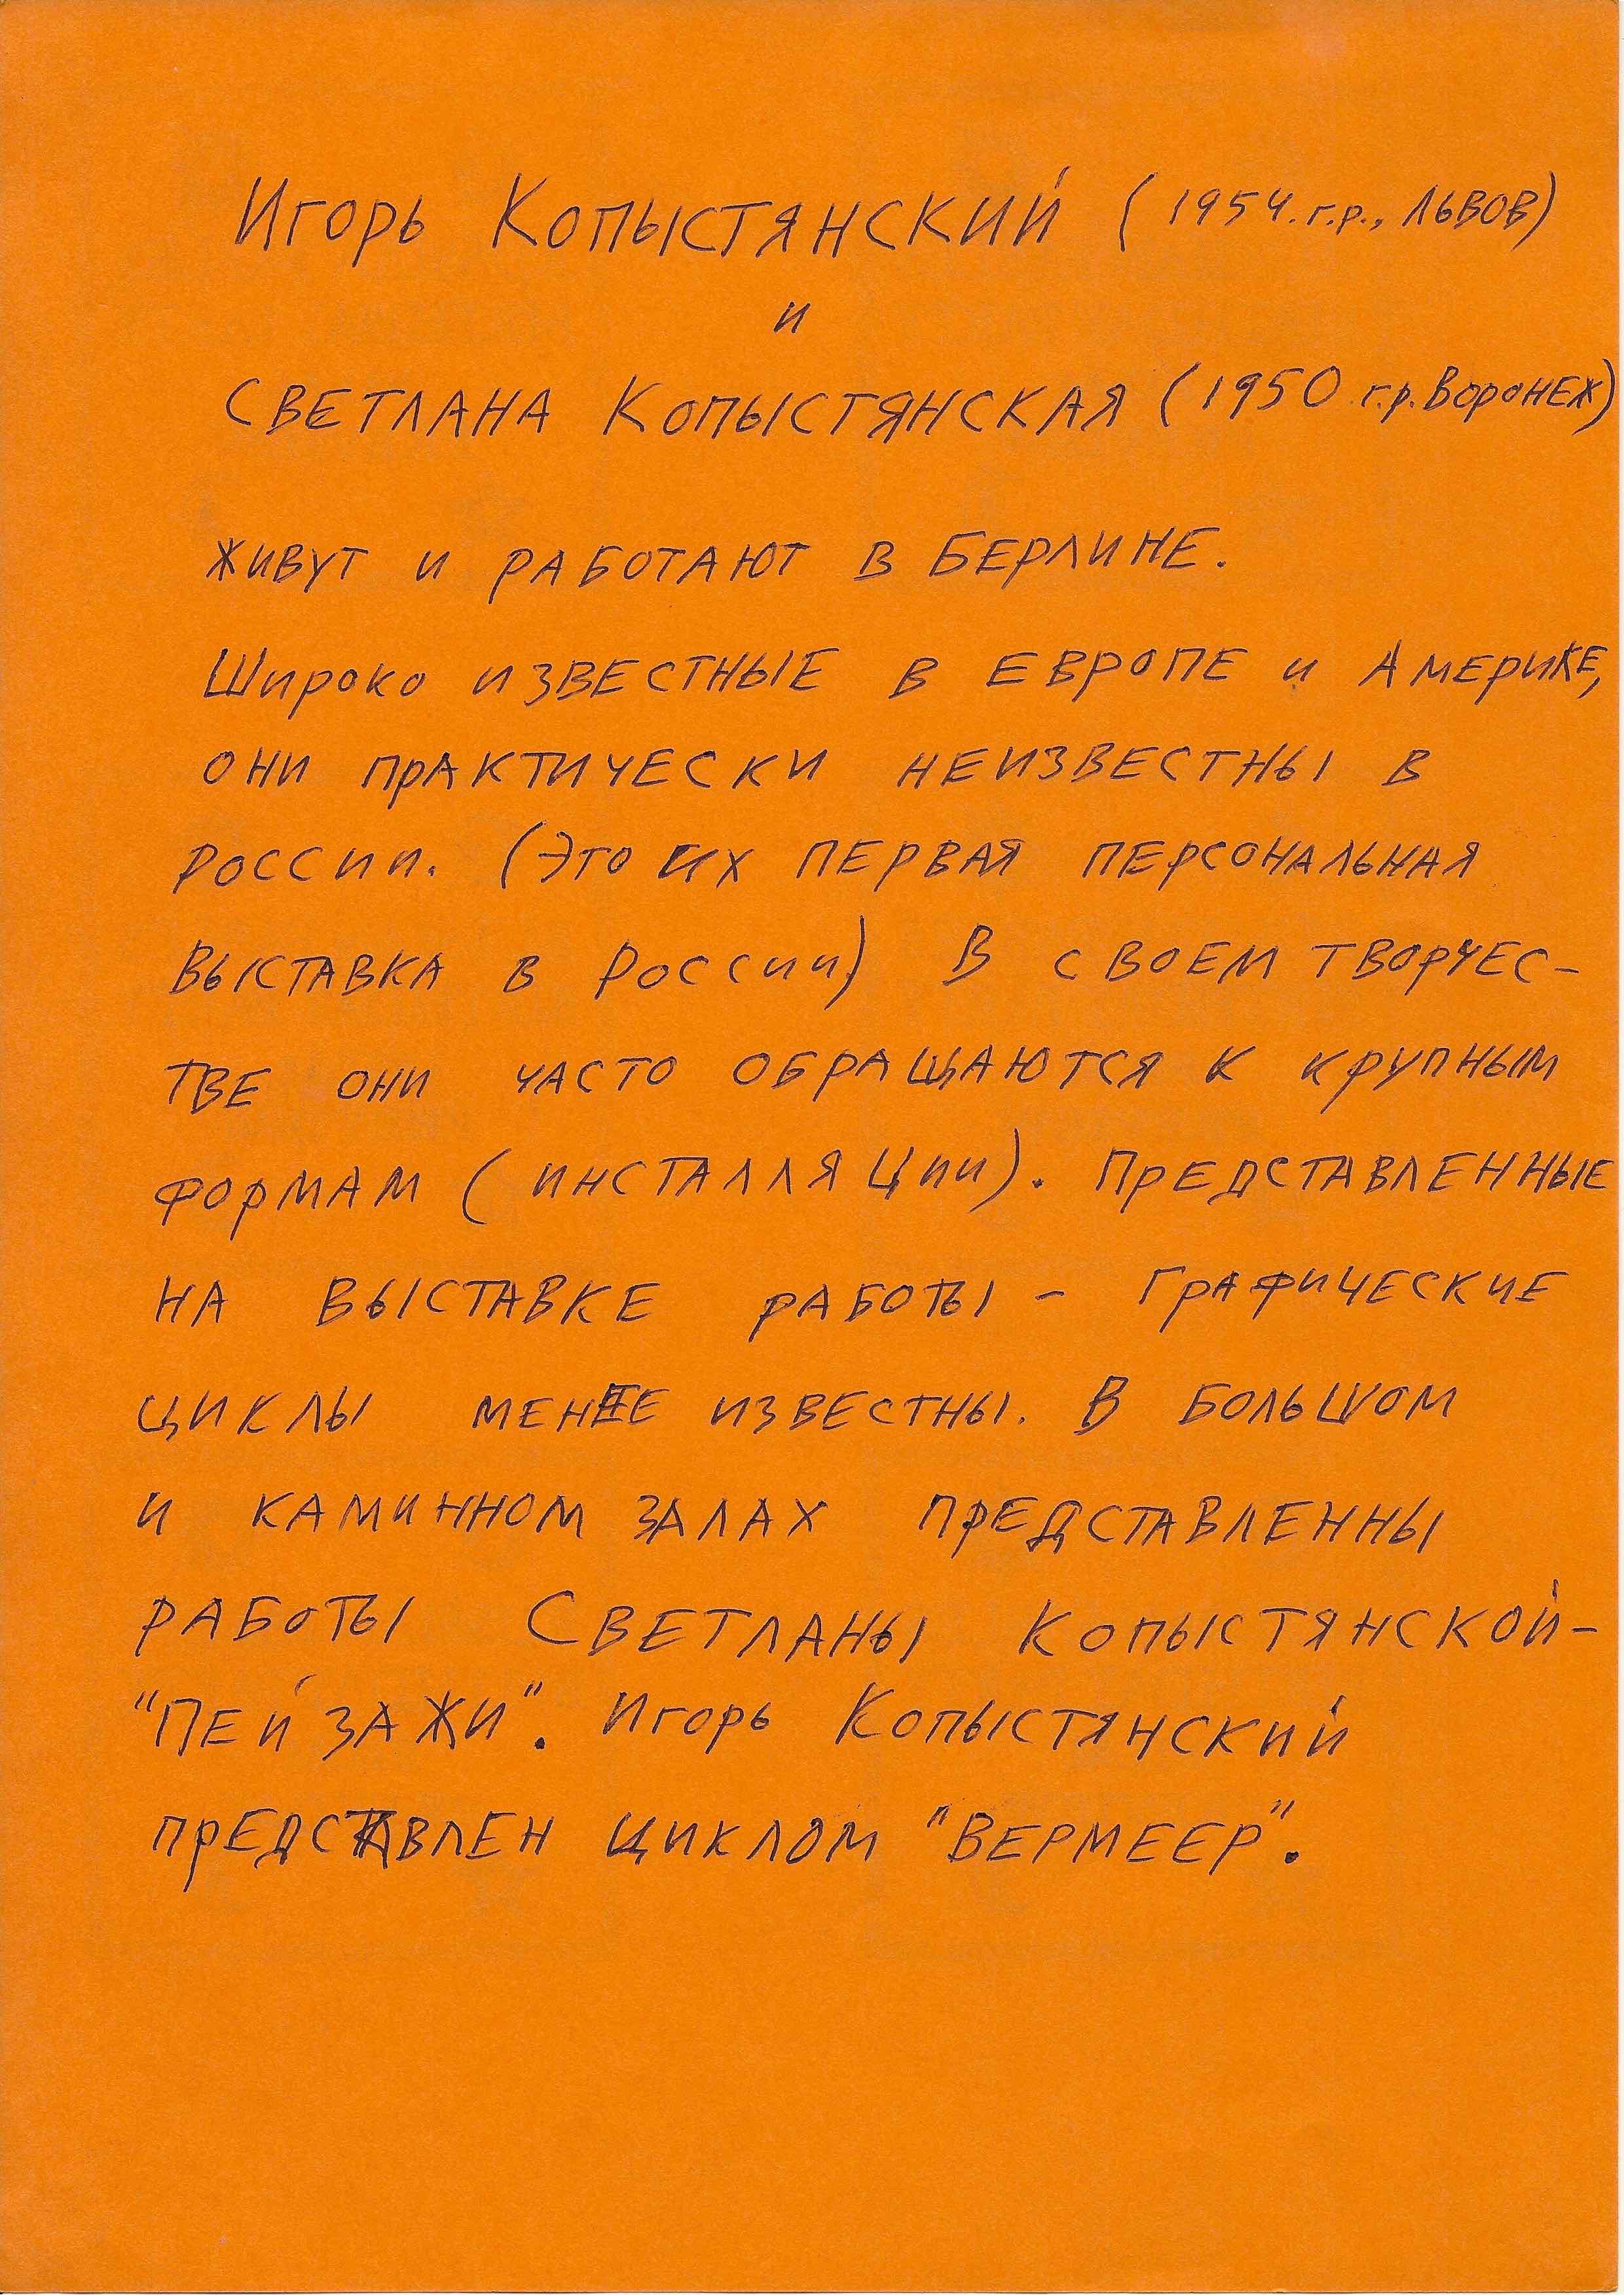 Игорь Копыстянский (1954. г.р., Львов)
и
Светлана Копыстянская (1950 г.р. Воронеж)
живут и работают в Берлине.
Широко известные в Европе и Америке,
они практически неизвестны в
России. (Это их первая персональная
выставка в России) В своем творчес-
тве они часто обращаются к крупным
формам (инсталляции). Представленные
на выставке работы - графические
циклы менее известны. В большом
и каминном залах представленны
работы Светланы Копыстянской -
"Пейзажи". Игорь Копыстянский
представлен циклом "Вермеер".